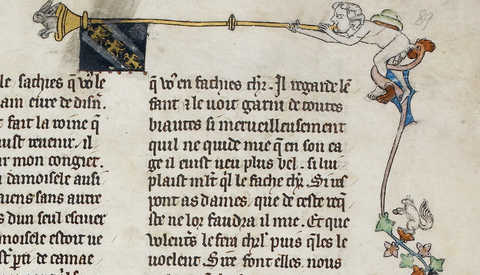 89
le sachies q̄ vo⁹ le
ain eure de disn̄.
t fait la roine q̄
uist reuenir. il
ar mon congiet.
a damoisele ausi
uens sans autre
s dun seul escuier
amoisele estoit ue
de camae
q̄ vo⁹ en fachies chr̄. Il regarde lē
fant ⁊ le uoit garni de toutes
biautes si merueilleusement
quil ne quide mie q̄ en son ea
ge il eust ueu plus bel. si lui
plaist ml't q̄l le fache chr̄. Si res
pont as dames, que de ceste req̄
ste ne lor faudra il mie. Et que
le fera chl'r puis q̄les le
uoelent. Sire font elles. nous